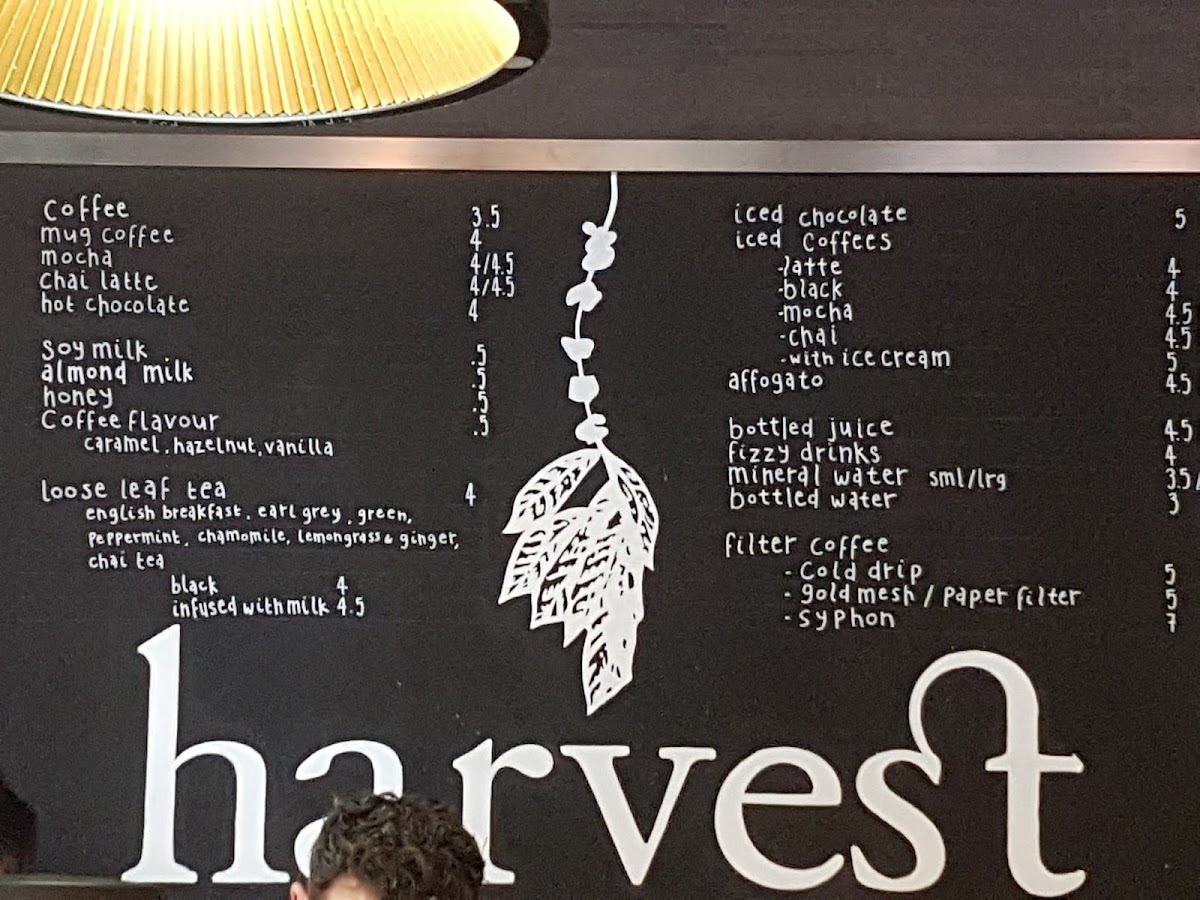 Coffee 3.5
mug coffee 4
mocha 4/4.5
chai latte 4/4.5
hot chocolate 4
soy milk .5
almond milk .5
honey .5
Coffee flavour .5
caramel, hazelnut, vanilla
loose leaf tea 4
english breakfast, earl grey, green,
peppermint, chamomile, lemongrass & ginger,
chai tea
black 4
infused with milk 4.5
iced chocolate 5
iced coffees
-latte 4
-black 4
-mocha 4.5
-chai 4.5
-with ice cream 5
affogato 4.5
bottled juice 4.5
fizzy drinks 4
mineral water sml/lrg 3.5/
bottled water 3
filter coffee
- cold drip 5
- gold mesh / paper filter 5
- syphon 7
harvest